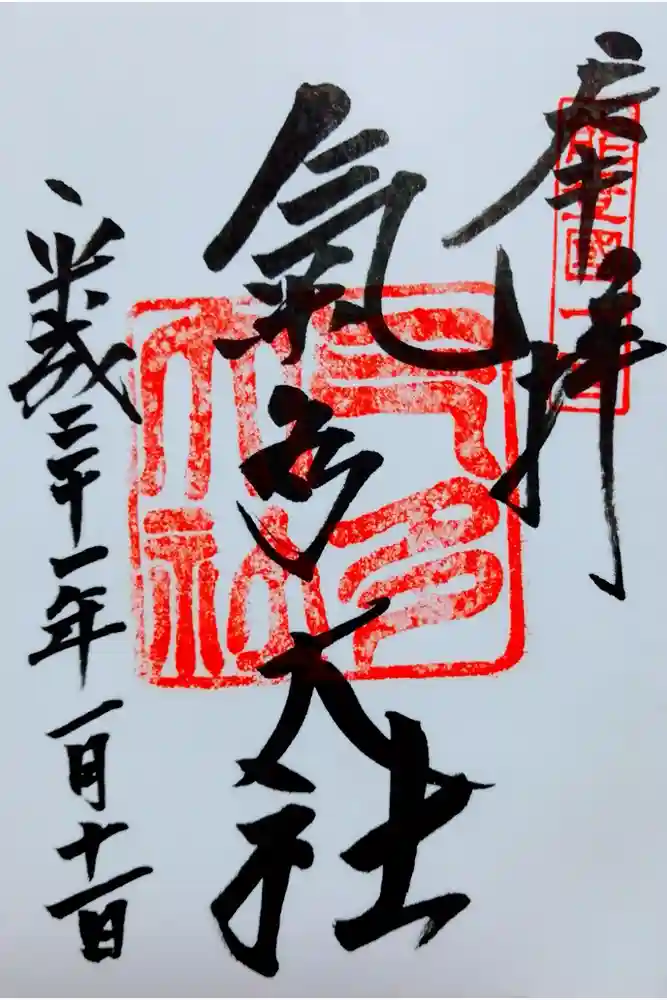 奉拝
能登國一宮
氣多大社
气多大社
平成三十一年一月十一日